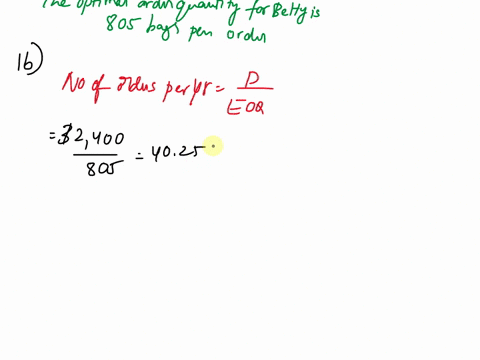 The optimal order quantity for Betty is
805 bags per order
1b)
No of orders per yr = D
EOQ
= 32,400
805
= 40.25